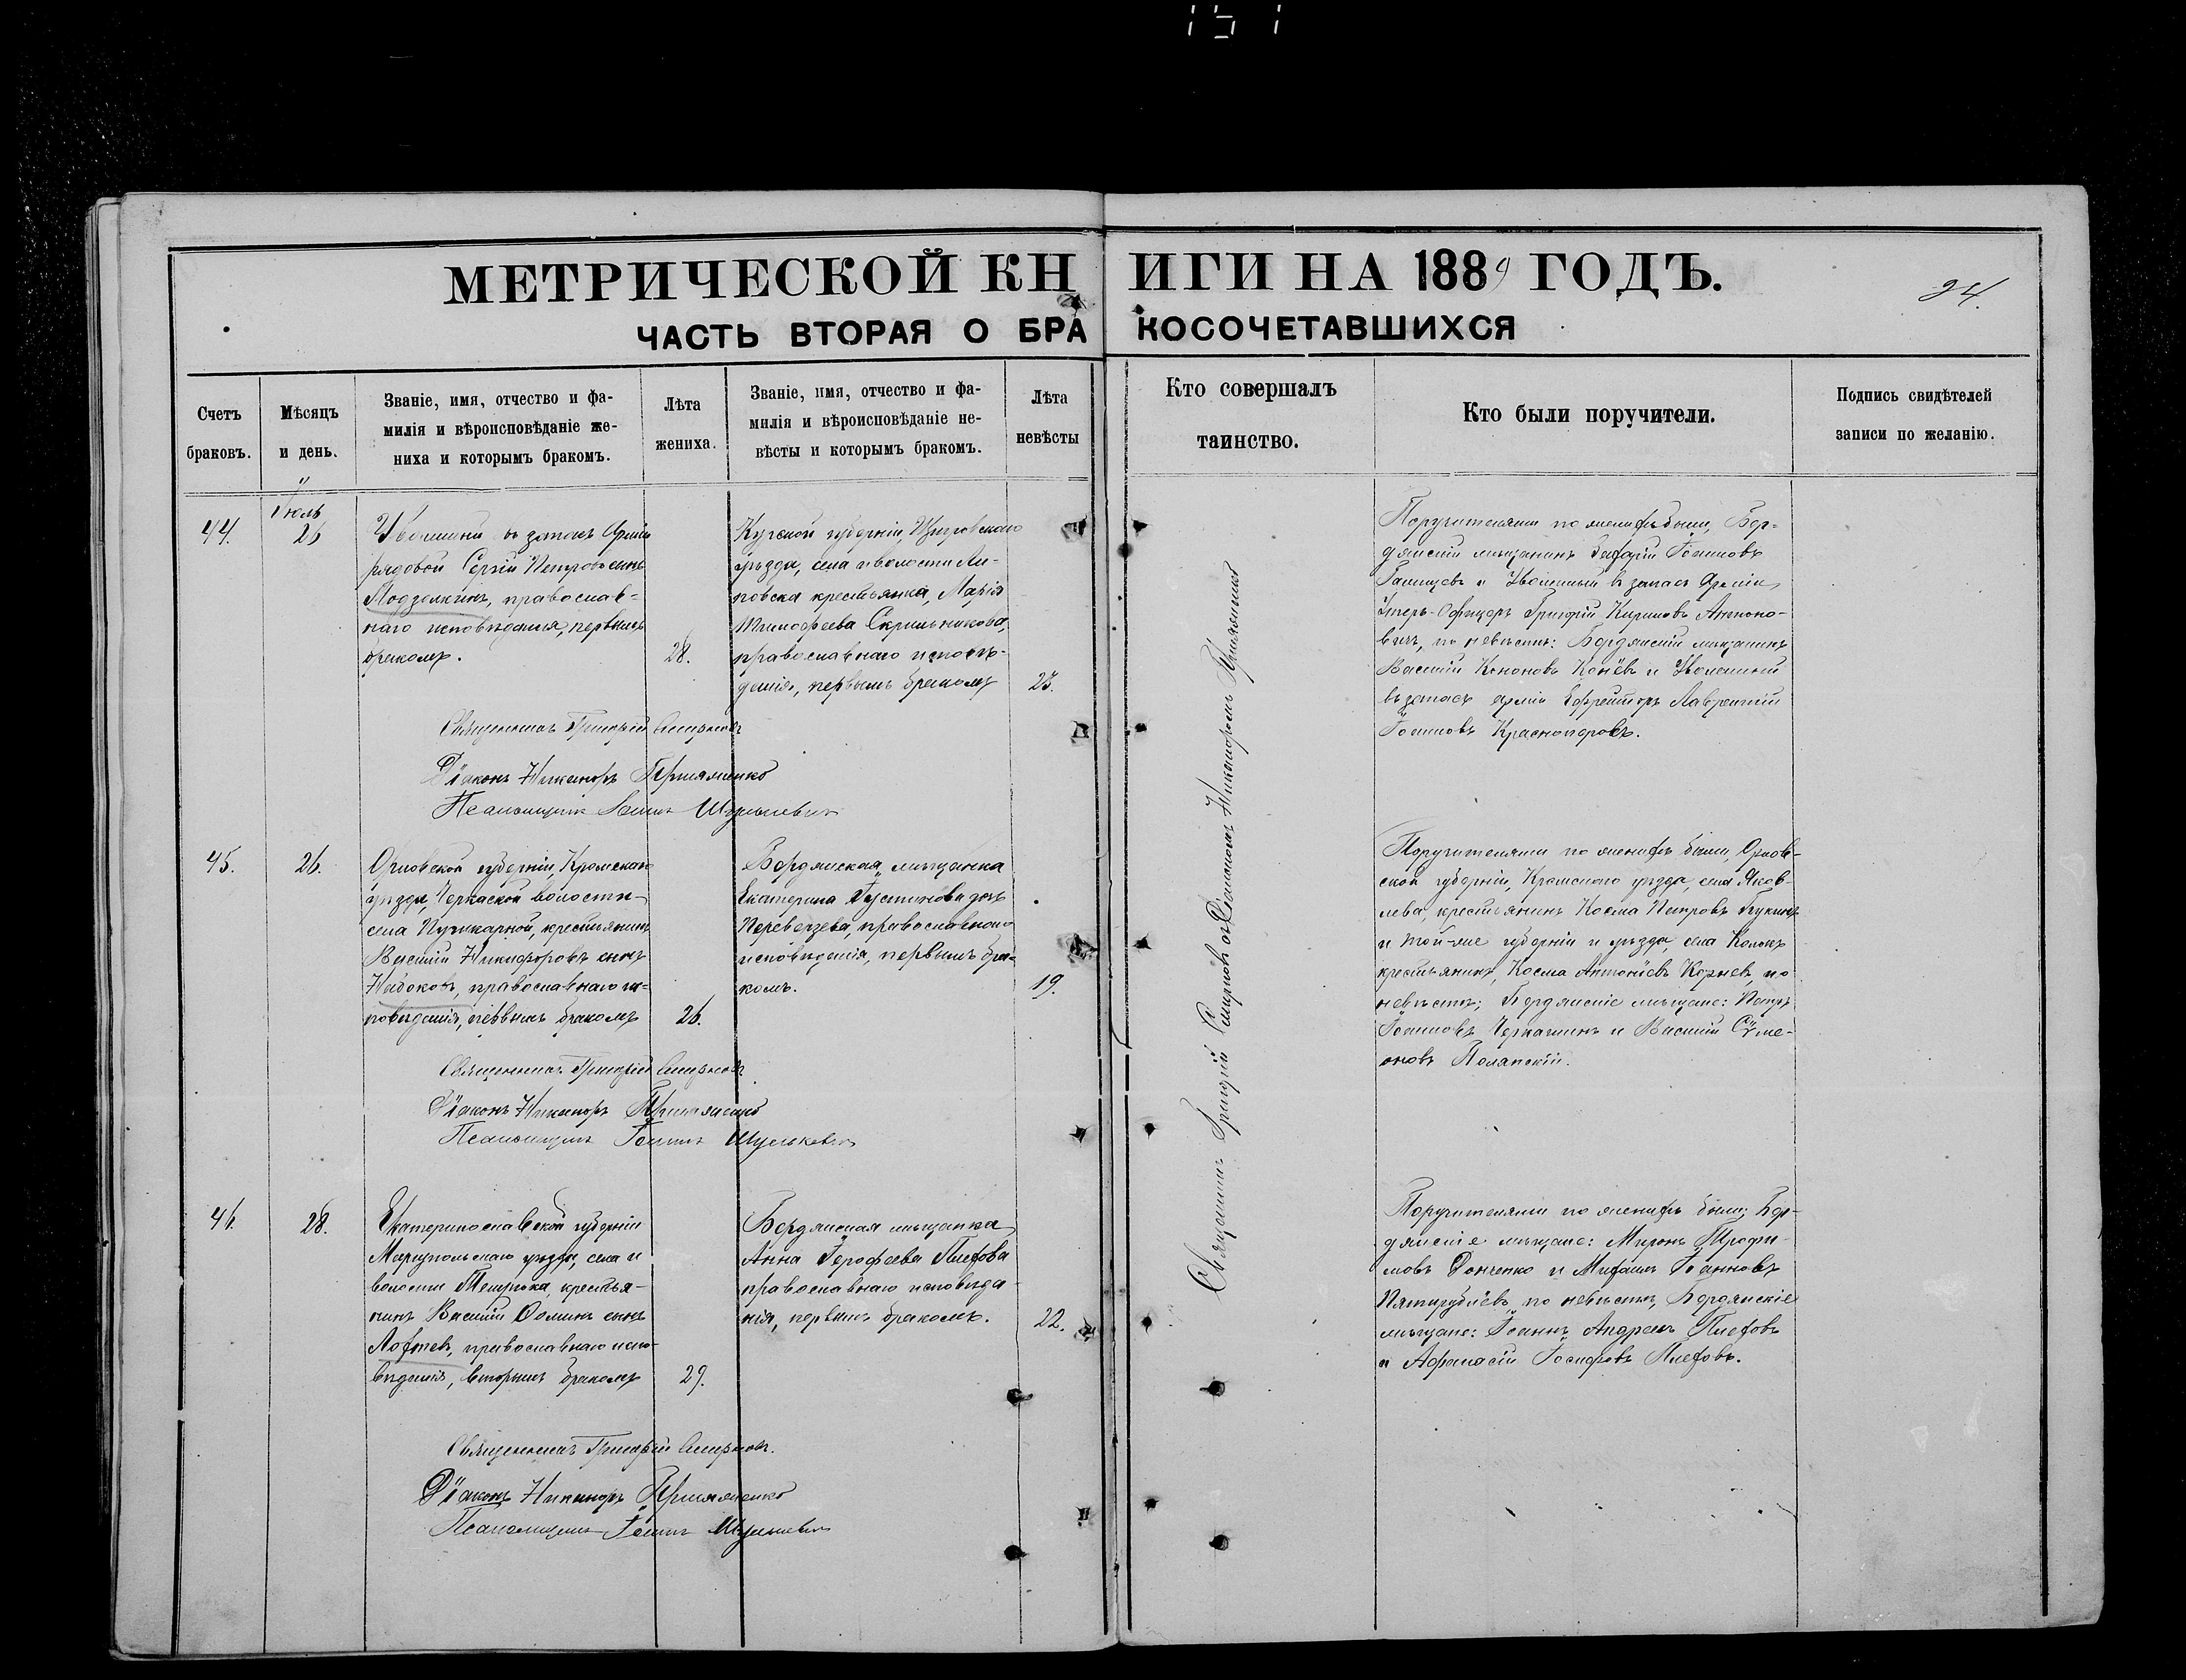 МЕТРИЧЕСКОЙ КНИГИ НА 1889 ГОДЪ.
24.
ЧАСТЬ ВТОРАЯ О БРАКОСОЧЕТАВШИХСЯ
Счетъ браковъ.
Мѣсяцъ и день.
Званіе, имя, отчество и фа-
милія и вѣроисповѣданіе же-
ниха и которымъ бракомъ.
Лѣта жениха.
Званіе, имя, отчество и фа-
милія и вѣроисповѣданіе не-
вѣсты и которымъ бракомъ.
Лѣта невѣсты
Кто совершалъ таинство.
Кто были поручители.
Подпись свидѣтелей
записи по желанію.
44.
Іюль
26
Уволенный въ запасъ Арміи
рядовой Сергій Петровъ сынъ
православ-
наго исповѣданія, первымъ
бракомъ.
28.
Курской губерніи, Щигровскаго
уѣзда, села и волости Ли-
повска крестьянка, Марія
Тимофеева Скрыльникова,
православнаго исповѣ-
данія, первымъ бракомъ
23.
Поручителями по женихѣ были, Бер-
дянскій мѣщанинъ Захарій Іоанновъ
и Уволенный въ запасъ Арміи,
Унтеръ-Офицеръ Григорій Кириловъ Антоно-
вичъ, по невѣстѣ: Бердянскій мѣщанинъ
Василій Кононовъ Конёвъ и Уволенный
въ запасъ арміи Ефрейторъ Лаврентій
Іоанновъ Красноперовъ.
Священникъ Григорій Смирновъ
Діаконъ Никаноръ Пришляменко
Псаломщикъ Іоаннъ
45.
26.
Орловской губерніи, Кромскаго
уѣзда, Черкаской волости
села Пушкарной, крестьянинъ
Василій Никифоровъ сынъ
Набоковъ, православнаго ис-
повѣданія, первымъ бракомъ
26.
Бердянская мѣщанка
Екатерина Іустинова дочь
Переверзева, православнаго
исповѣданія, первымъ бра-
комъ.
19.
Поручителями по женихѣ были, Орлов-
ской губерніи, Кромскаго уѣзда, села Яков-
лева, крестьянинъ Косма Петровъ
и той-же губерніи и уѣзда, села
крестьянинъ, Косма Антоніевъ Корневъ, по
невѣстѣ; Бердянскіе мѣщане: Петръ
Іоанновъ Черкашинъ и Василій Симе-
оновъ
Священникъ Григорій Смирновъ
Діаконъ Никаноръ
Псаломщикъ Іоаннъ
46
28.
Екатеринославской губерніи
Маріупольскаго уѣзда, села и
волости Темрюка, крестья-
нинъ Василій Ѳоминъ сынъ
православнаго испо-
вѣданія, вторымъ бракомъ
29.
Бердянская мѣщанка
Анна Іерофеева Плехова
православнаго исповѣда-
нія, первымъ бракомъ.
22.
Поручителями по женихѣ были; Бер-
дянскіе мѣщане: Миронъ Трофи-
мовъ Донченко и Михаилъ Іоанновъ
Пятирублёвъ, по невѣстѣ, Бердянскіе
мѣщане: Іоаннъ Андреевъ Плеховъ
и Афанасій Іосифовъ Плеховъ.
Священникъ Григорій Смирновъ.
Діаконъ Никаноръ
Псаломщикъ Іоаннъ
Священникъ Григорій Смирновъ съ Діакономъ Никаноромъ